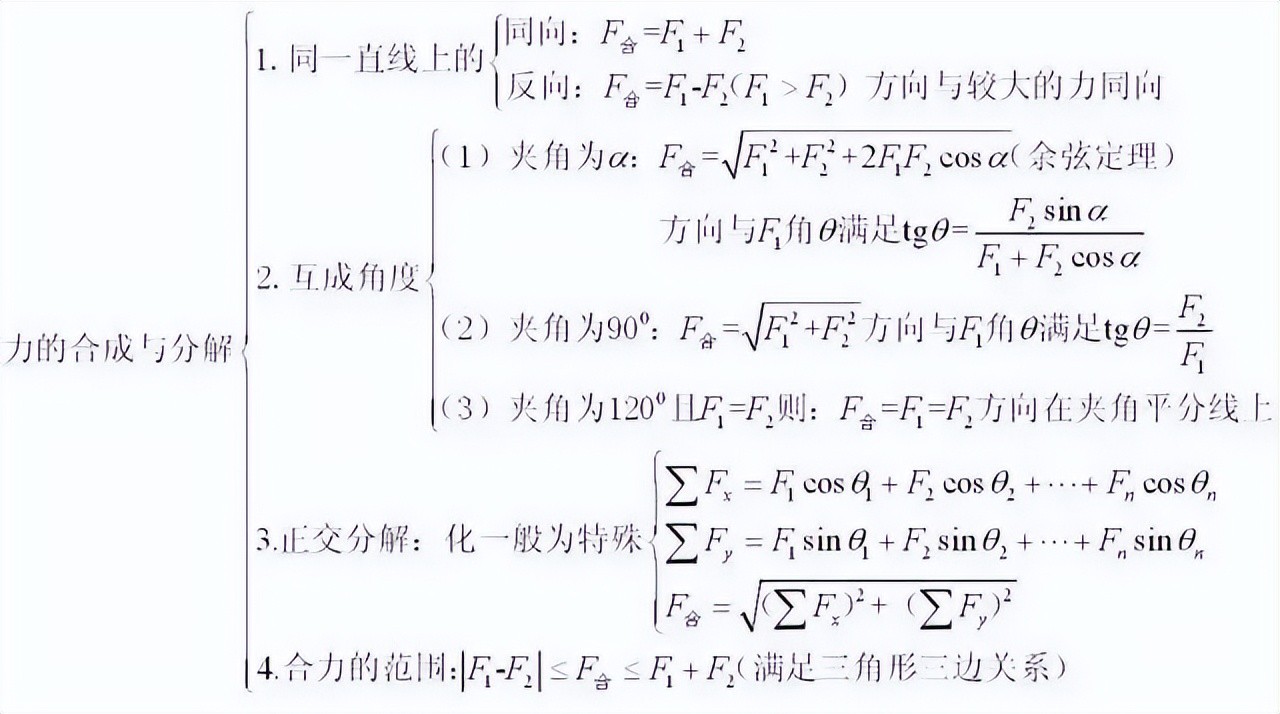 力的合成与分解
1. 同一直线上的
同向：F合=F₁+F₂
反向：F合=F₁-F₂(F₁ > F₂) 方向与较大的力同向
2. 互成角度
（1）夹角为α：F合=√(F₁²+F₂²+2F₁F₂ cos α)(余弦定理)
方向与F₁角θ满足tgθ=F₂ sin α/(F₁+F₂ cos α)
（2）夹角为90⁰：F合=√(F₁²+F₂²)方向与F₁角θ满足tgθ=F₂/F₁
（3）夹角为120⁰且F₁=F₂则：F合=F₁=F₂方向在夹角平分线上
3.正交分解：化一般为特殊
∑Fₓ = F₁ cos θ₁ + F₂ cos θ₂ + ⋯ + Fₙ cos θₙ
∑F_y = F₁ sin θ₁ + F₂ sin θ₂ + ⋯ + Fₙ sin θₙ
F合 = √((∑Fₓ)² + (∑F_y)²)
4.合力的范围:|F₁-F₂| ≤ F合 ≤ F₁ + F₂(满足三角形三边关系)